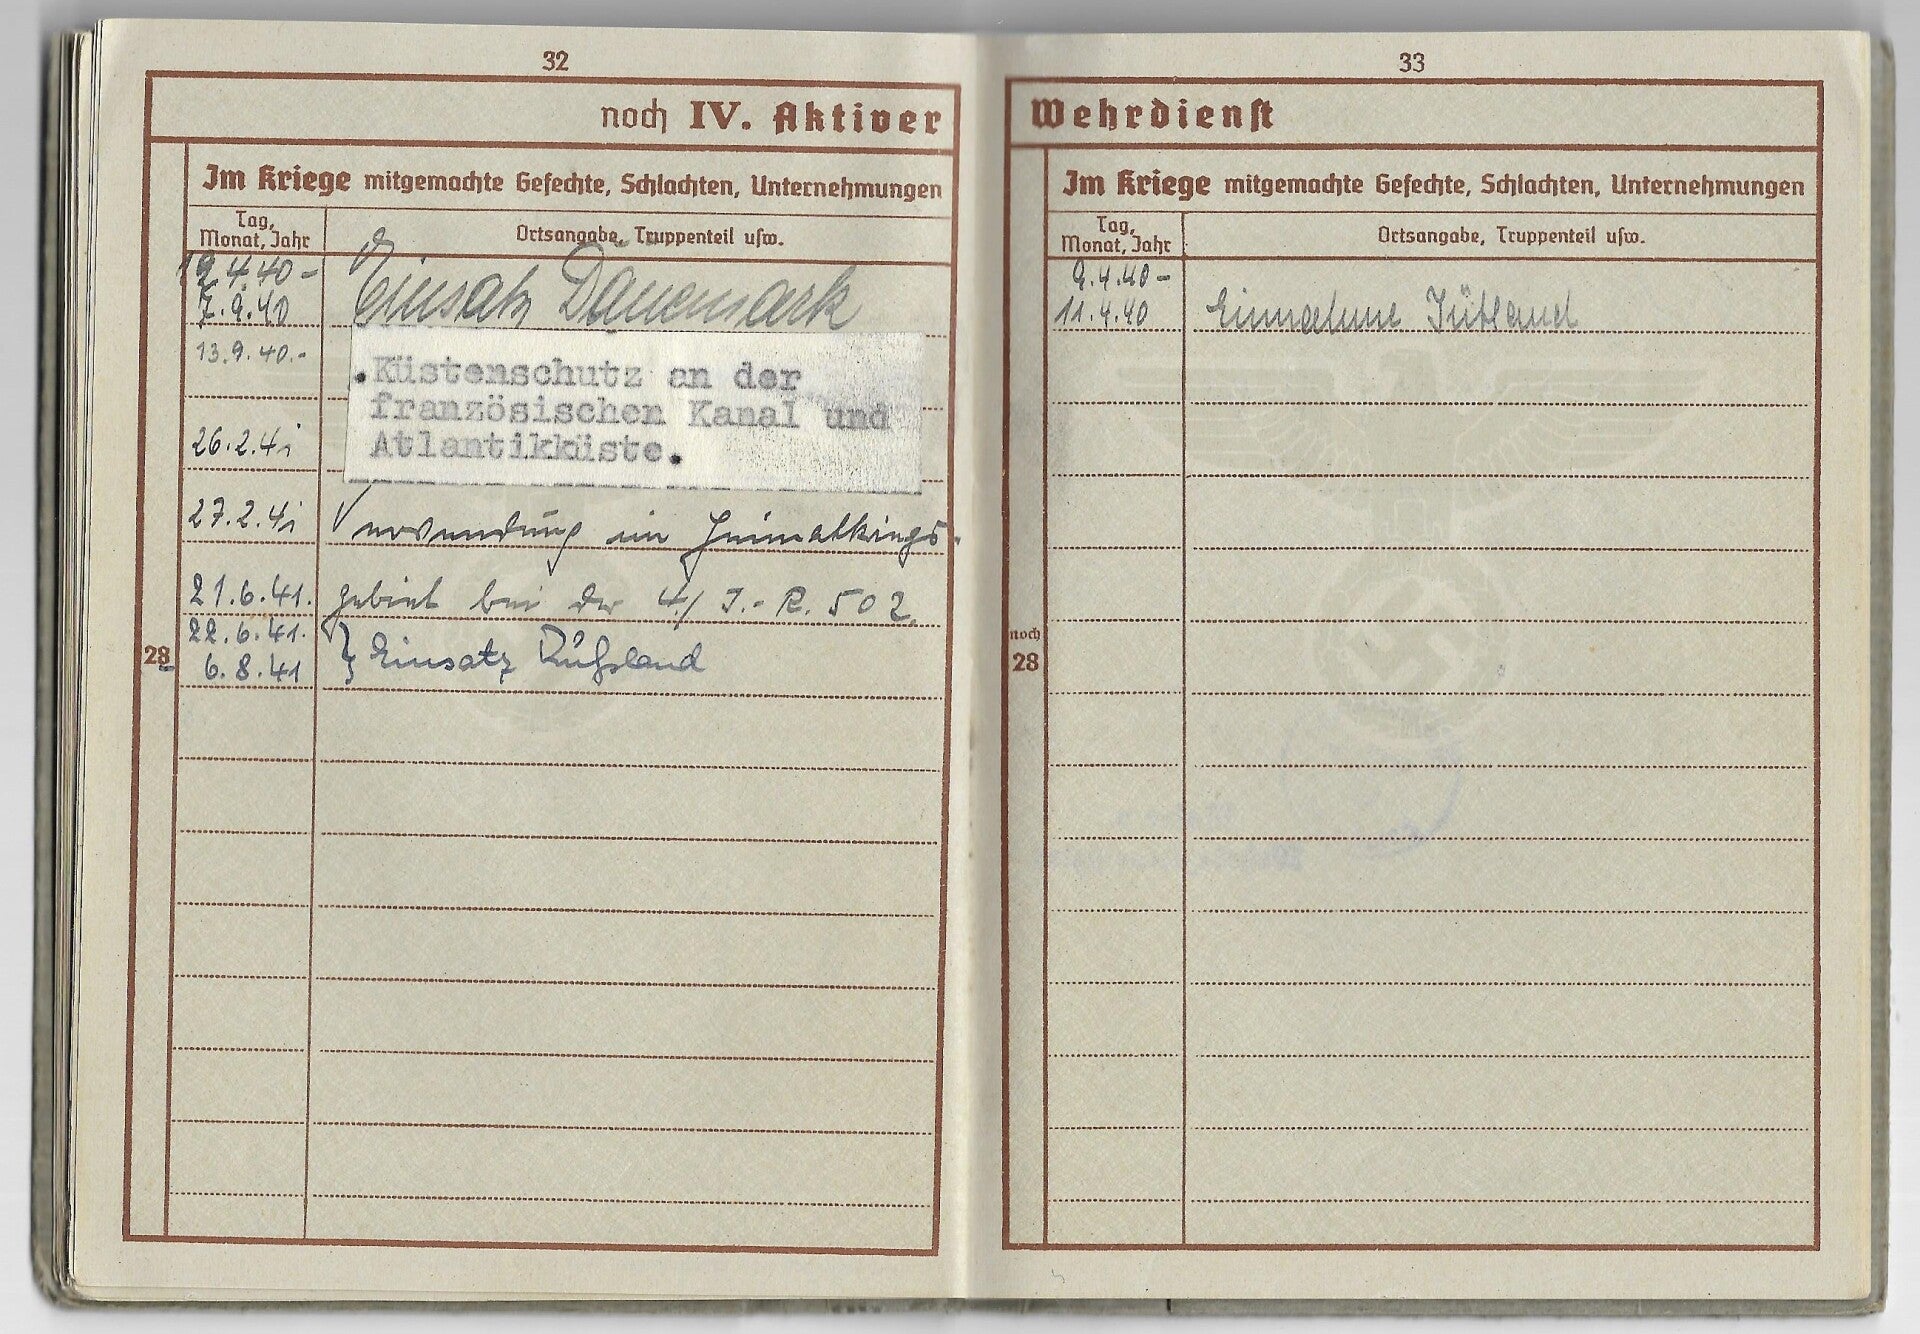 32
noch IV. Aktiver
Im Kriege mitgemachte Gefechte, Schlachten, Unternehmungen
Tag,
Monat, Jahr
Ortsangabe, Truppenteil usw.
4.40-
7.9.40
Einsatz Dänemark
13.9.40.-
.Küstenschutz an der
französischen Kanal und
Atlantikküste.
26.2.41
27.2.41 Verwendung im Heimatkriegs-
21.6.41. gebiet bei der 4/ I.-R. 502
22.6.41.
28 6.8.41 } Einsatz Rußland
33
Wehrdienst
Im Kriege mitgemachte Gefechte, Schlachten, Unternehmungen
Tag,
Monat, Jahr
Ortsangabe, Truppenteil usw.
9.4.40-
11.4.40 Einnahme Jütland
noch
28